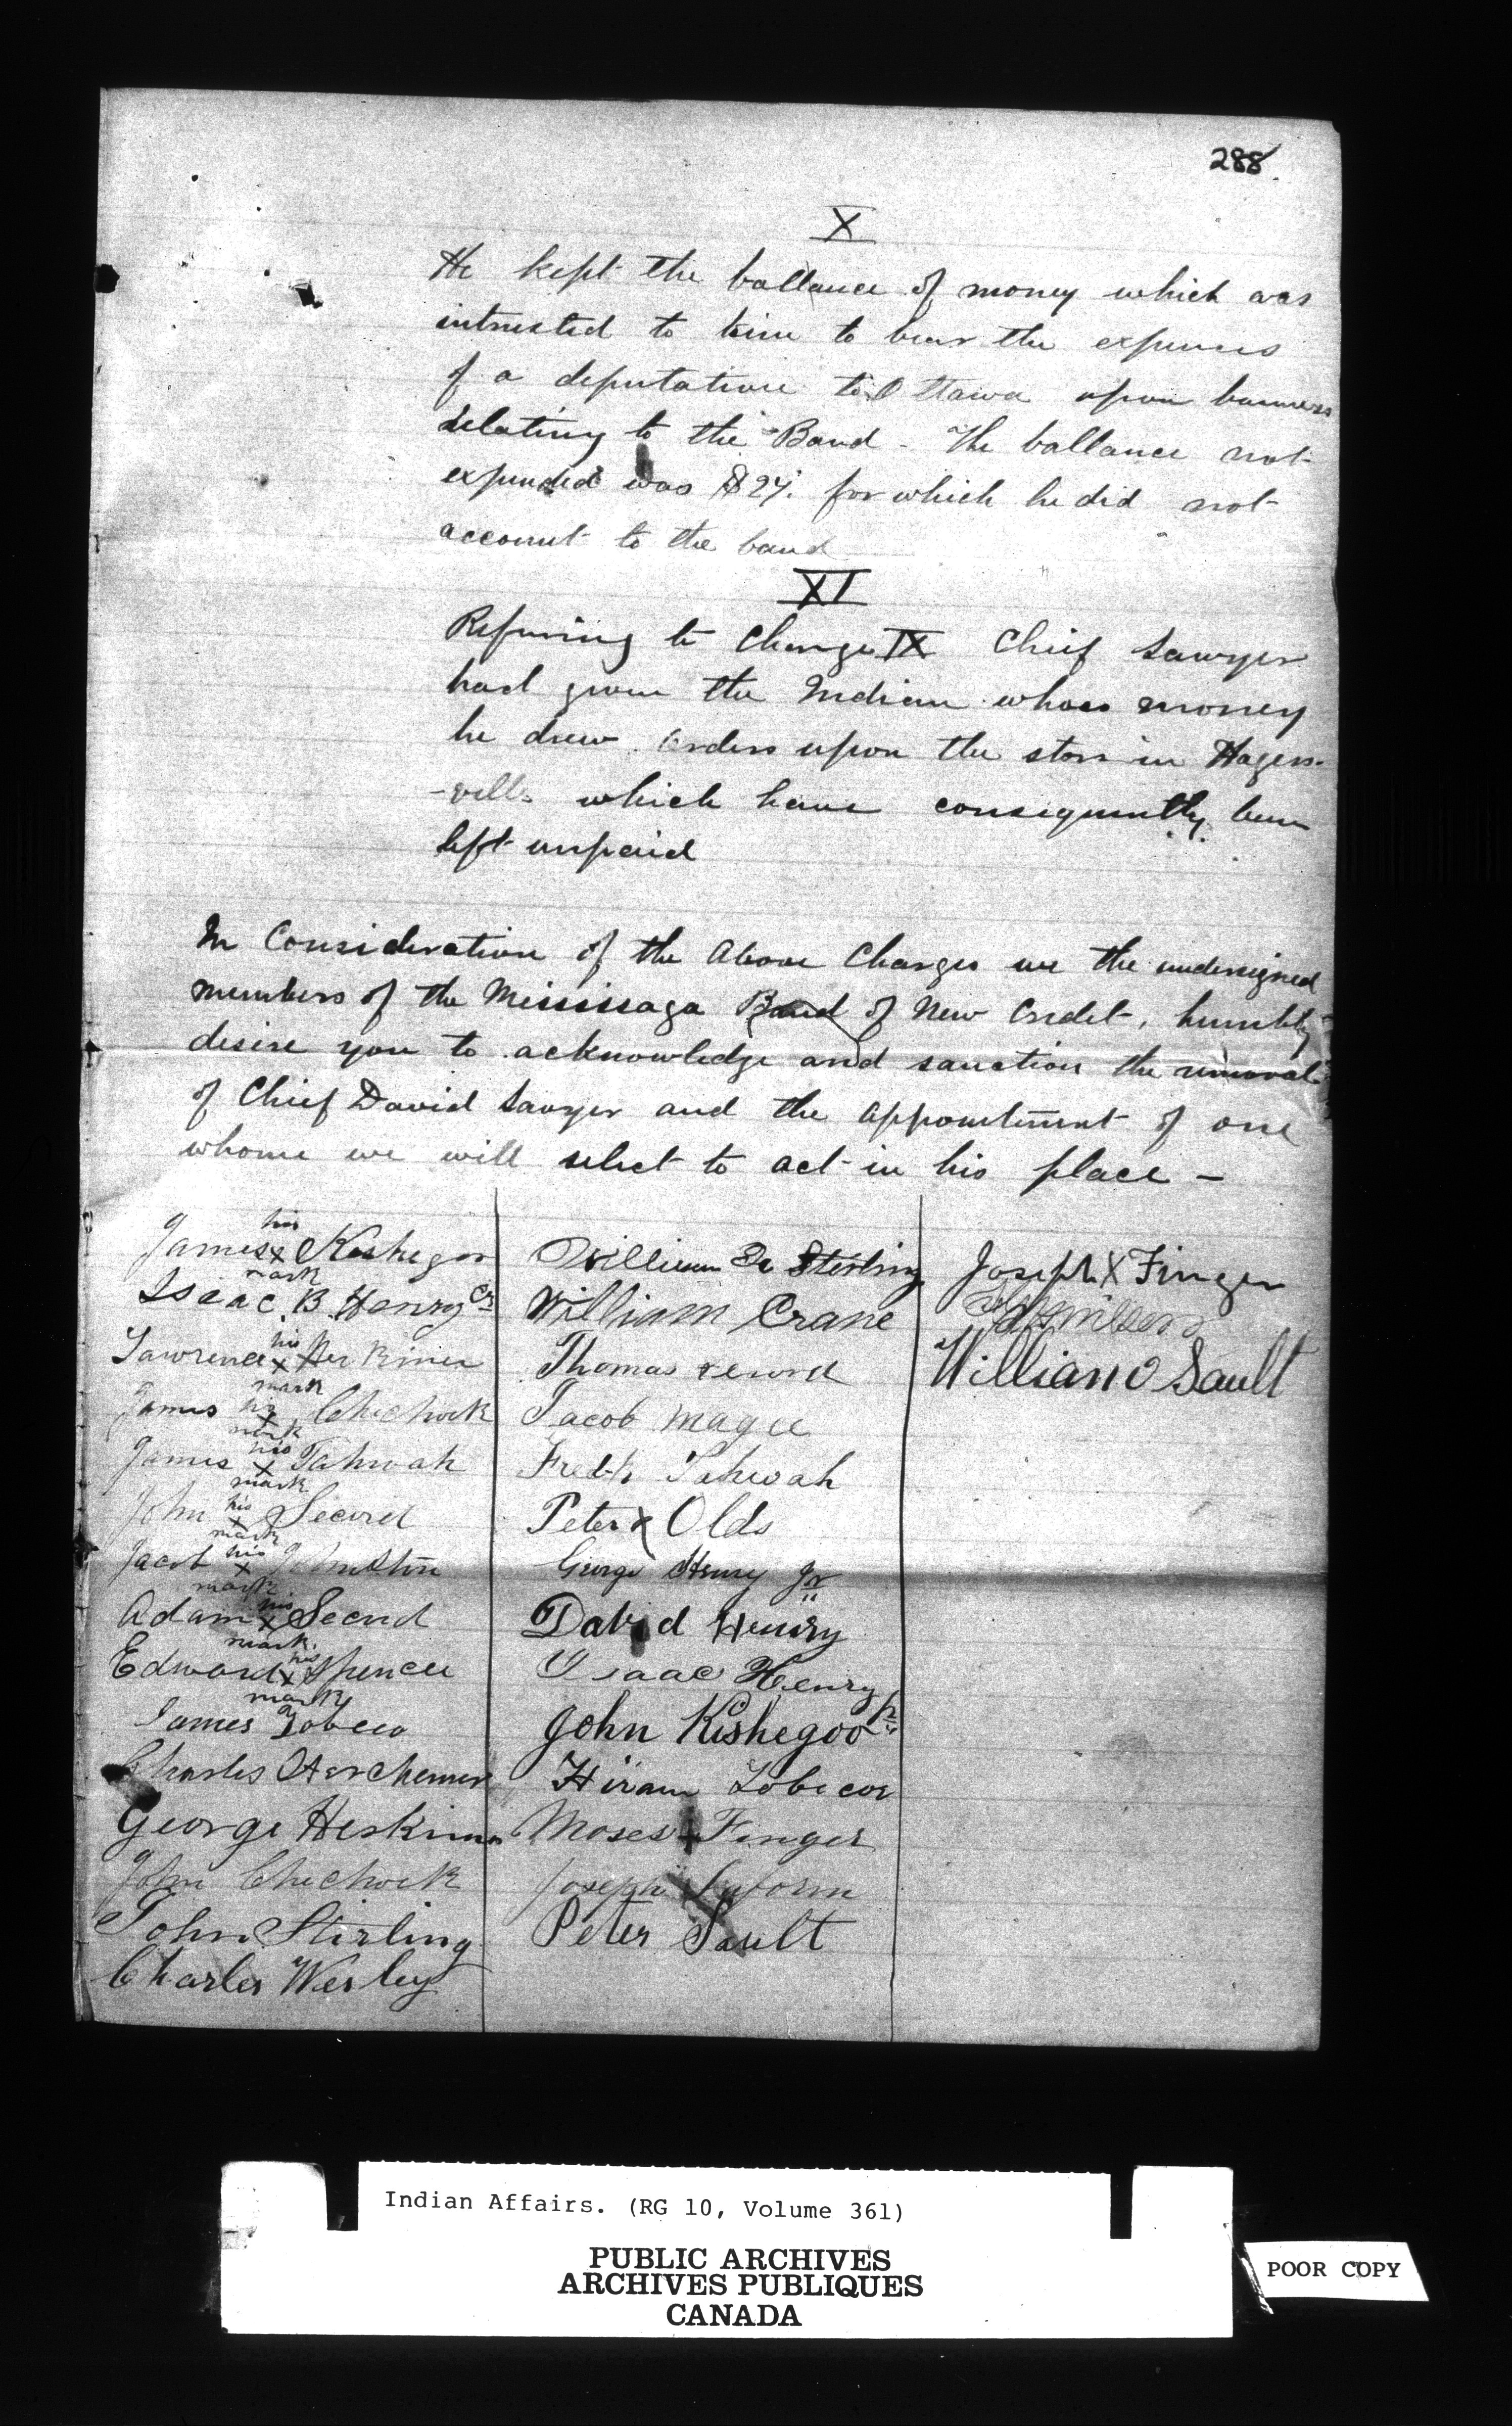 288.
X
He kept the ballance of money which was
intrusted to him to bear the expenses
of a deputation to Ottawa upon business
relating to the Band - The ballance not
expended was $27. for which he did not
account to the band
XI
Refering to Charge IX Chief Sawyer
had given the Indian whose money
he drew orders upon the store in Hagers-
-ville which have consequently been
left unpaid
In Consideration of the above Charges we the undersigned
members of the Mississaga Band of New Credit, humbly
desire you to acknowledge and sanction the removal
of Chief David Sawyer and the appointment of one
whome we will select to act in his place -
James his x mark Keshegoo
Isaac B. Henry
Lawrence his x mark Herkimer
James his x mark Chechock
James his x mark Tahwah
John his x mark Secord
Jacob his x mark Johnston
Adam his x mark Secord
Edward his x mark Spencer
James Tobeco
Charles Herchemer
George Herkimer
John Chechock
John Stirling
Charles Wesley
William Sterling
William Crane
Thomas secord
Jacob magee
Fredk Tahwah
Peter x Olds
George Henry Jr
David Henry
Isaac Henry
John Kishegoo
Hiram Tobecoe
Moses + Finger
Joseph Laform
Peter Sault
Joseph X Finger
William Sault
Indian Affairs. (RG 10, Volume 361)
PUBLIC ARCHIVES
ARCHIVES PUBLIQUES
CANADA
POOR COPY